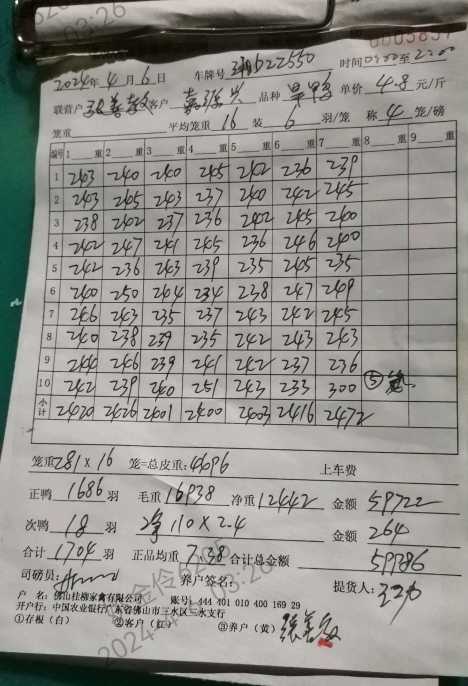 03:26
0003857
2024年4月6日 车牌号 湘D22550 时间0200至2200
联营户 客户 嘉 兴 品种 旱鸭 单价 4.8 元/斤
笼重 平均笼重 16 装 6 羽/笼 称 4 笼/磅
编号 1 重 2 重 3 重 4 重 5 重 6 重 7 重 8 重 9 重
1 243 240 240 245 242 236 239
2 243 245 243 237 240 242 245
3 238 242 237 236 242 245 240
4 242 247 241 245 236 246 240
5 242 236 243 239 235 245 235
6 240 250 244 234 238 247 249
7 246 243 235 237 243 242 245
8 240 238 239 235 242 243 243
9 244 246 239 241 242 237 236
10 242 239 240 251 243 233 300 ⑤笼
小计 2420 2426 2401 2400 2403 2416 2472
笼重 281×16 笼=总皮重: 4696 上车费
正鸭 1686 羽 毛重 16938 净重 12442 金额 59722
次鸭 18 羽 净 110×2.4 金额 264
合计 1704 羽 正品均重 7.38 合计总金额 59986
司磅员: 养户签名: 提货人:
户 名: 佛山桂柳家禽有限公司 账号: 444 401 010 400 169 29
开户行: 中国农业银行广东省佛山市三水区三水支行
①存根（白） ②客户（红） ③养户（黄）